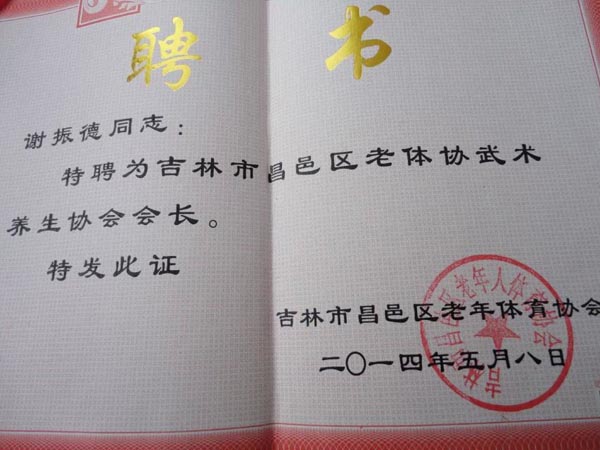 聘书
谢振德同志：
特聘为吉林市昌邑区老体协武术
养生协会会长。
特发此证
吉林市昌邑区老年体育协会
二〇一四年五月八日
吉林市昌邑区老年人体育协会